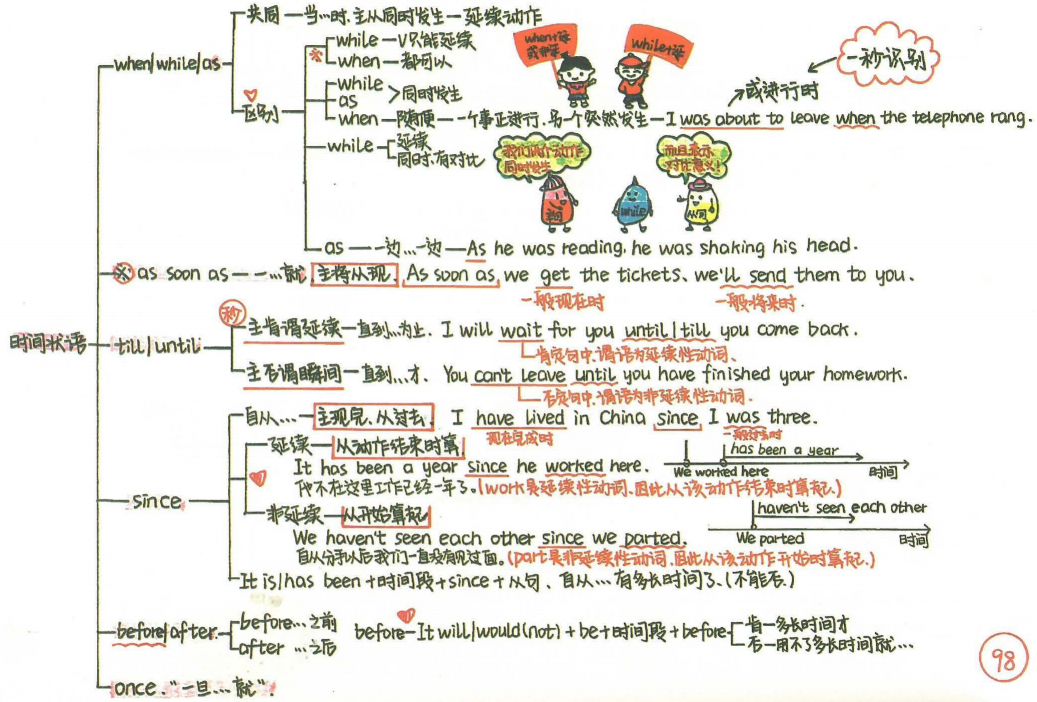 时间状语
when/while/as
共同—当…时.主从同时发生—延续动作
区别
※
while—V只能延续
when—都可以
while
as
>同时发生
when—随便—一个事正进行.另一个突然发生—I was about to leave when the telephone rang.
或进行时
一秒识别
while
延续
同时.有对比
when+延
或非延
while+延
我们两个动作
同时发生
而且表示
对比意义!
while
as—一边…一边—As he was reading, he was shaking his head.
※as soon as—一…就.主将从现. As soon as, we get the tickets、we'll send them to you.
一般现在时
一般将来时.
till/until
秒
主肯谓延续—直到…为止. I will wait for you until/till you come back.
肯定句中.谓语为延续性动词、
主否谓瞬间—直到…才. You can't leave until you have finished your homework.
否定句中.谓语为非延续性动词.
since
自从…—主现完.从过去. I have lived in China since I was three.
现在完成时
一般过去时
延续—从动作结束时算
It has been a year since he worked here.
has been a year
We worked here
时间
他不在这里工作已经一年了。(work是延续性动词.因此从该动作结束时算起.)
非延续—从开始算起
We haven't seen each other since we parted.
haven't seen each other
We parted
时间
自从分手以后我们一直没有见过面。(part是非延续性动词.因此从该动作开始时算起.)
It is/has been+时间段+since+从句、自从…有多长时间了、(不能否.)
before/after
before…之前
after …之后
before—It will/would(not)+be+时间段+before
肯—多长时间才
否—用不了多长时间就…
once、"一旦…就".
98